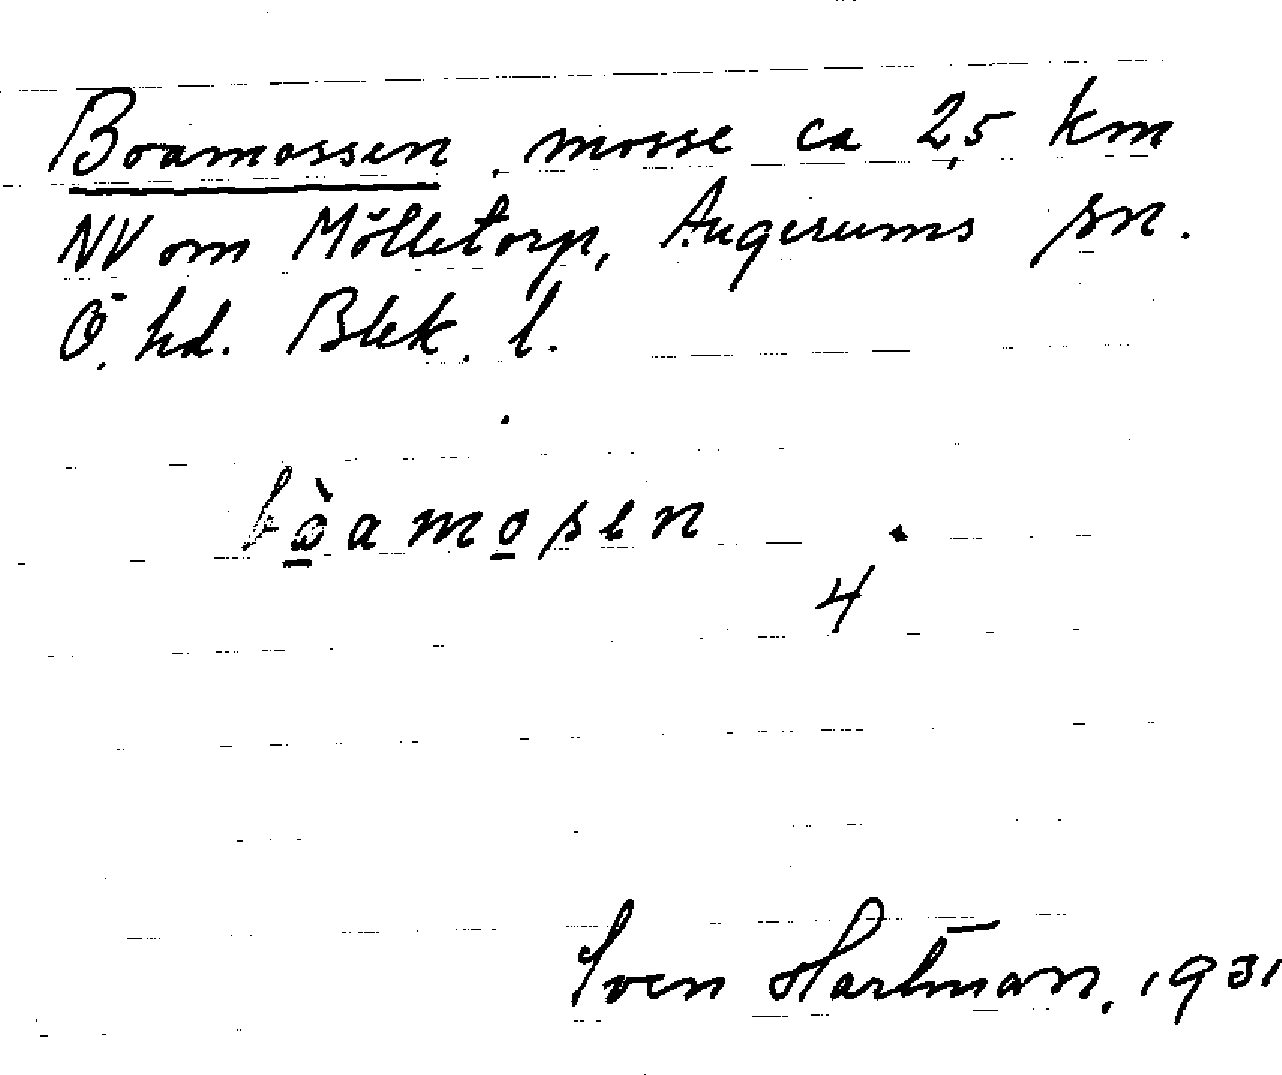 Boamossen, mosse ca 2,5 km
NV om Mölletorp, Augerums sn.
Ö. hd. Blek. l.
bò̲amo̲sen.
4
Sven Hartman, 1931